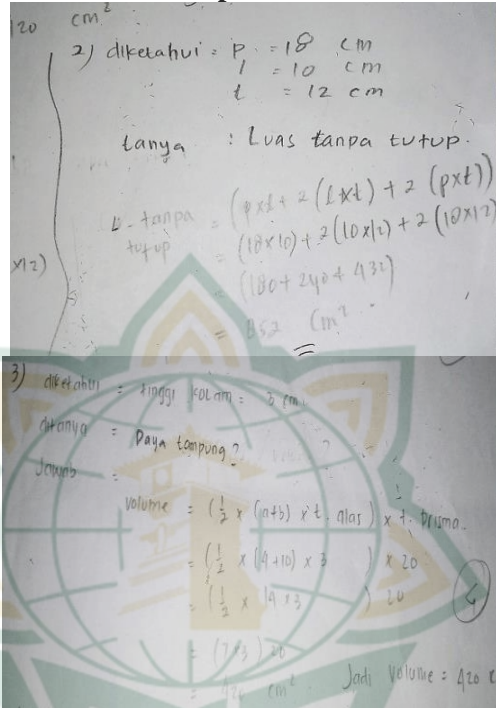 120 cm²
2) diketahui = p = 18 cm
l = 10 cm
t = 12 cm
tanya : Luas tanpa tutup.
L. tanpa tutup = (p x l + 2 (l x t) + 2 (p x t))
x12)
= (18 x 10) + 2 (10 x 12) + 2 (18 x 12)
= (180 + 240 + 432)
= 852 cm²
3) diketahui = tinggi kolam = 3 cm
ditanya = Daya tampung?
Jawab =
Volume = (1/2 x (a+b) x t. alas) x t. prisma.
= (1/2 x (4+10) x 3) x 20
= (1/2 x 14 x 3) 20
= (7 x 3) 20
= 420 cm². Jadi Volume = 420 c